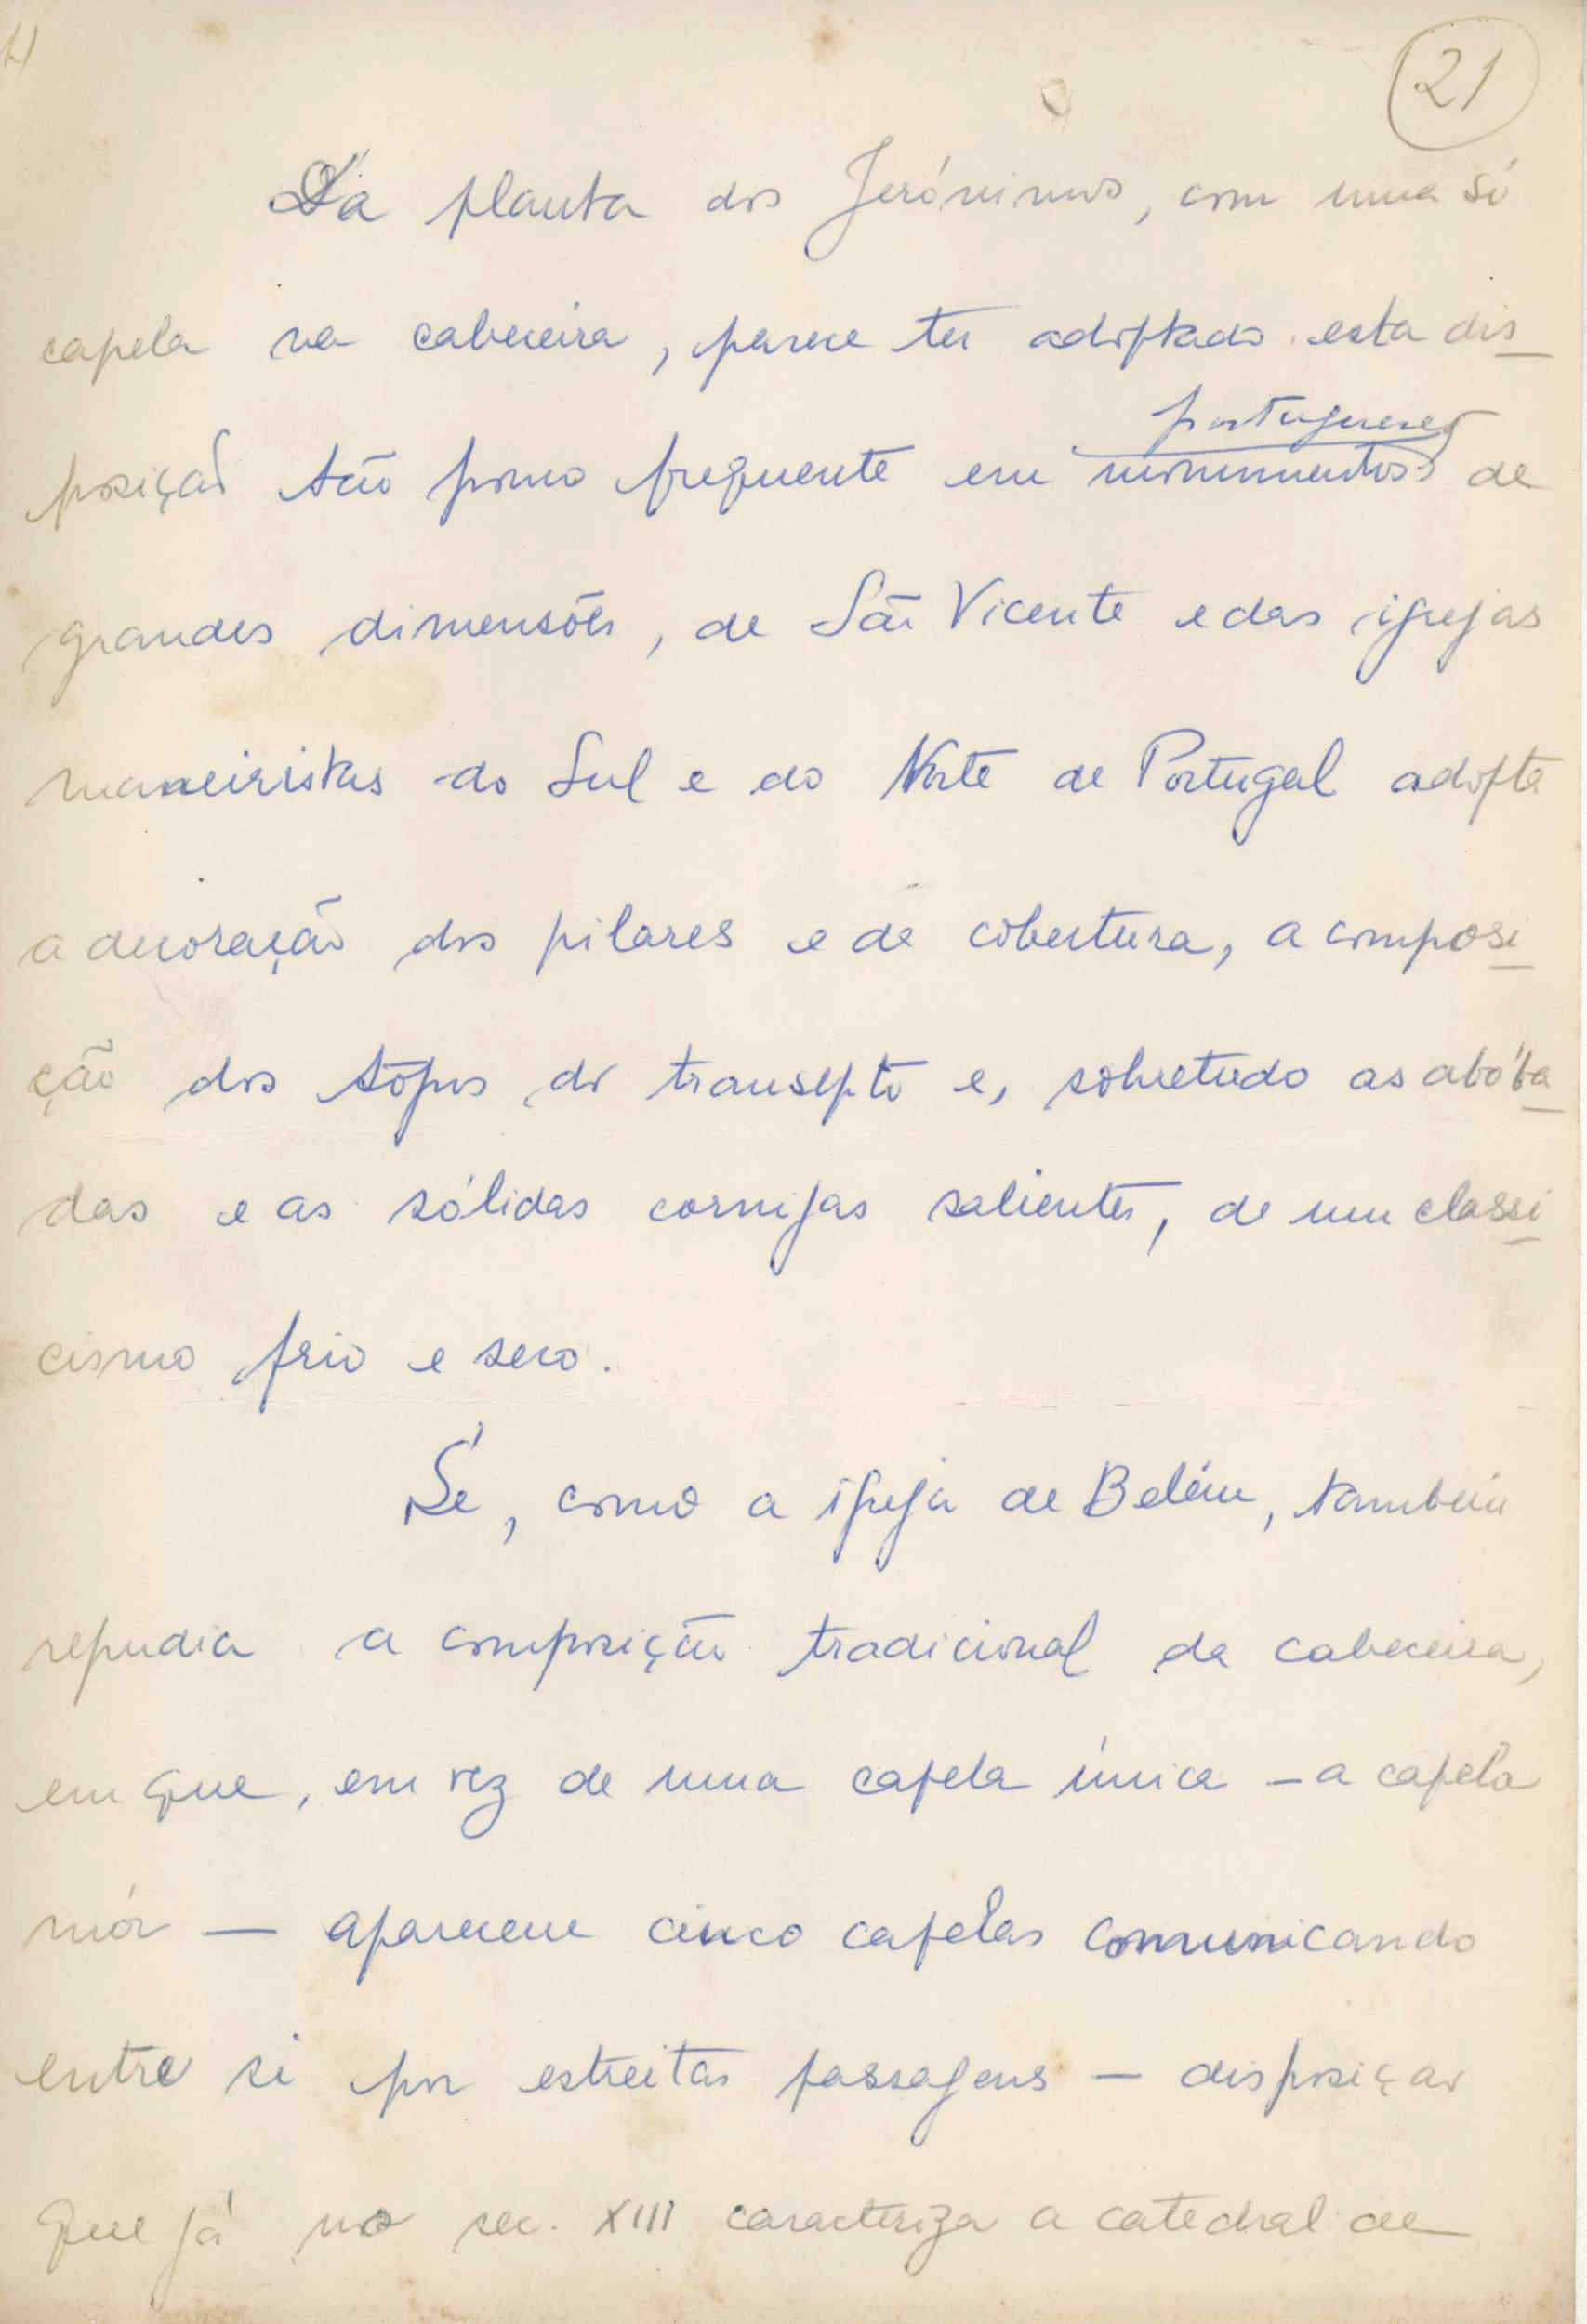 21
Da planta dos Jerónimos, com uma só
capela na cabeceira, parece ter adoptado esta dis
portugueses
posição tão pouco frequente em monumentos de
grandes dimensões, de São Vicente e das igrejas
maneiristas do Sul e do Norte de Portugal adopta
a decoração dos pilares e da cobertura, a composi
ção dos tôpos do transepto e, sobretudo as abóba
das e as sólidas cornijas salientes, de um classi
cismo frio e seco.
Sé, como a igreja de Belém, também
repudia a composição tradicional da cabeceira,
em que, em vez de uma capela única - a capela
mór — aparecem cinco capelas comunicando
entre si por estreitas passagens — disposição
que já no sec. XIII caracteriza a catedral de